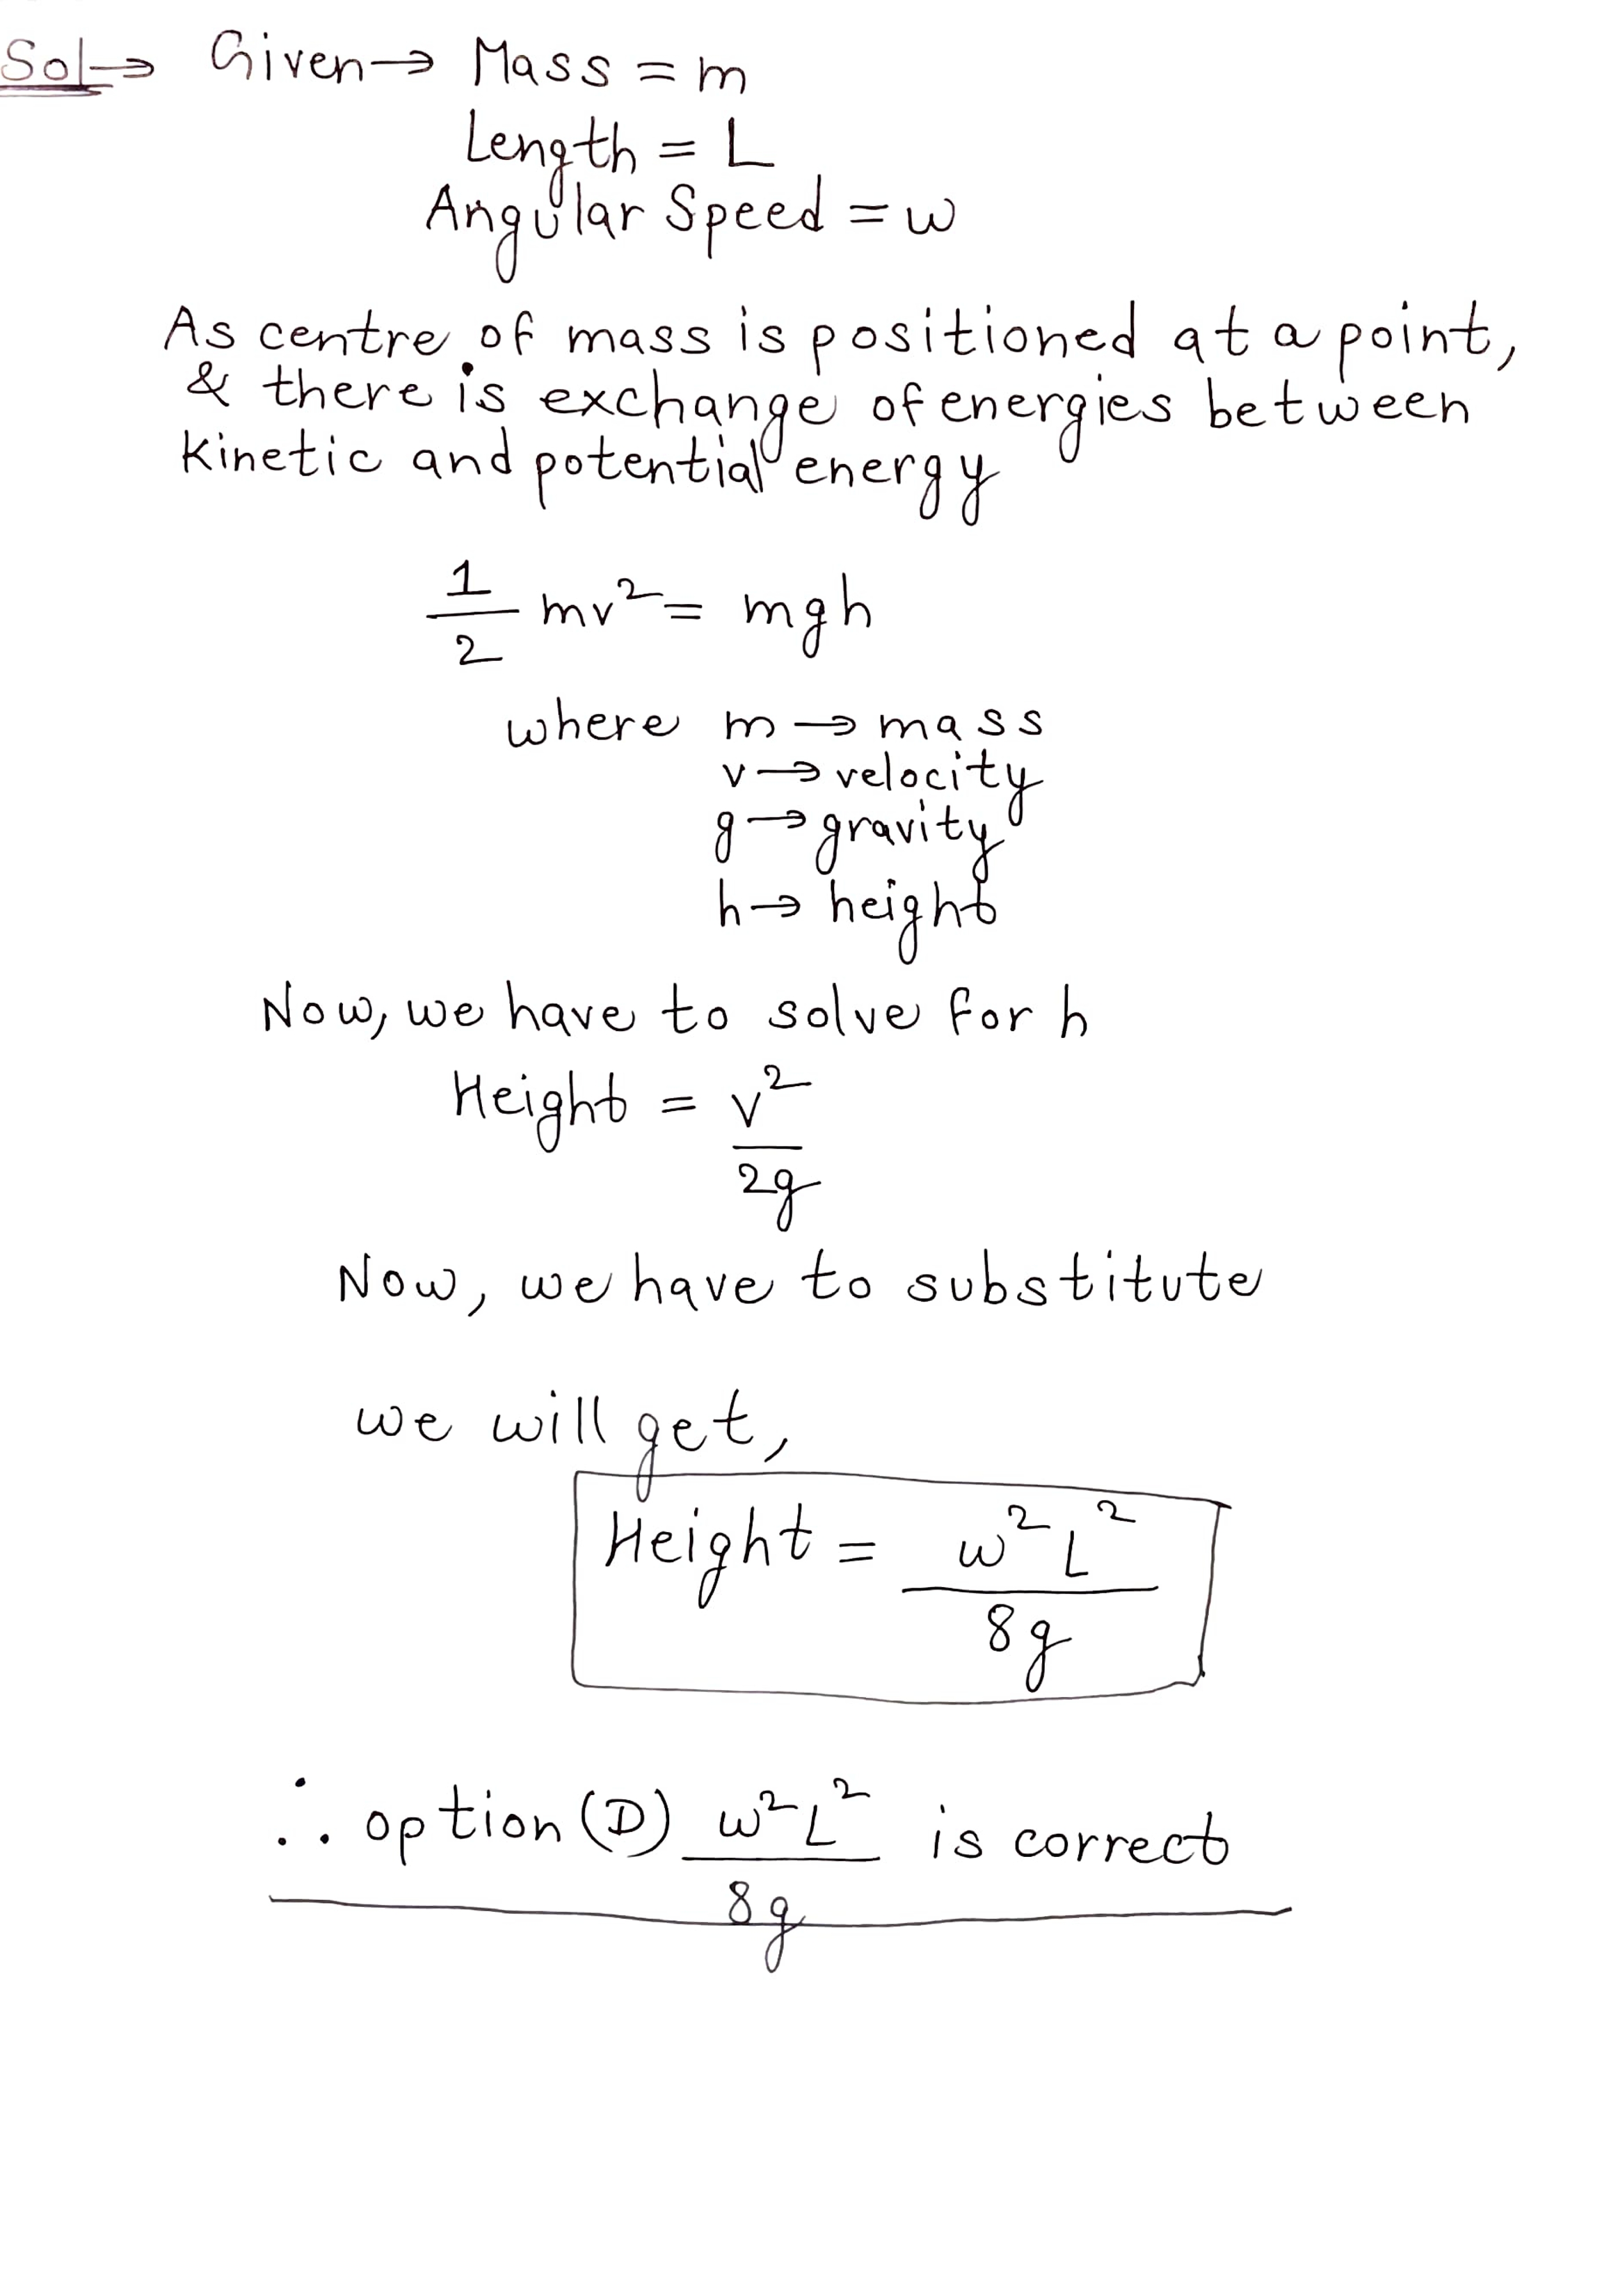 Sol→ Given→ Mass = m
Length = L
Angular Speed = w
As centre of mass is positioned at a point,
& there is exchange of energies between
kinetic and potential energy
1/2 mv² = mgh
where m → mass
v → velocity
g → gravity
h → height
Now, we have to solve for h
Height = v²/2g
Now, we have to substitute
we will get,
Height = w²L²/8g
∴ option (D) w²L²/8g is correct